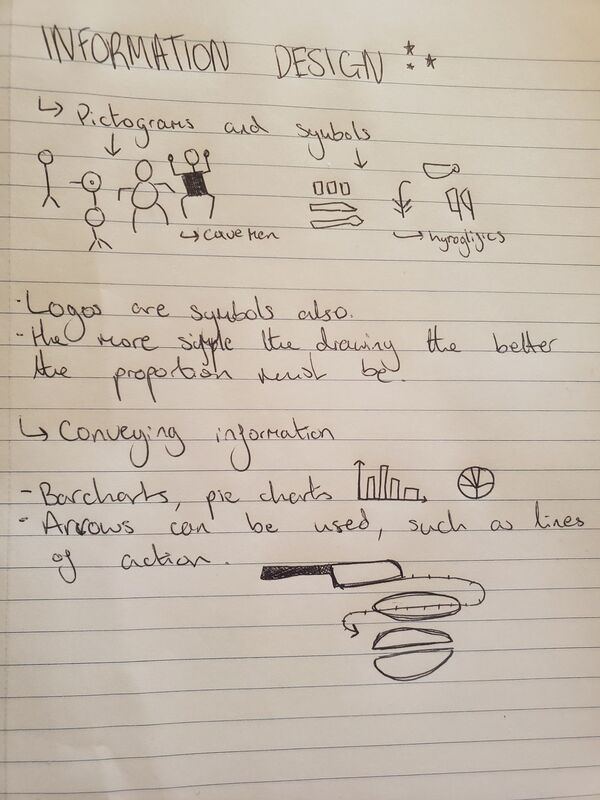 INFORMATION DESIGN
↳ Pictograms and symbols
↳ cave men
↳ hyroglifics
· Logos are symbols also.
- the more simple the drawing the better
the proportion must be.
↳ Conveying information
- Barcharts, pie charts
· Arrows can be used, such as lines
of action.